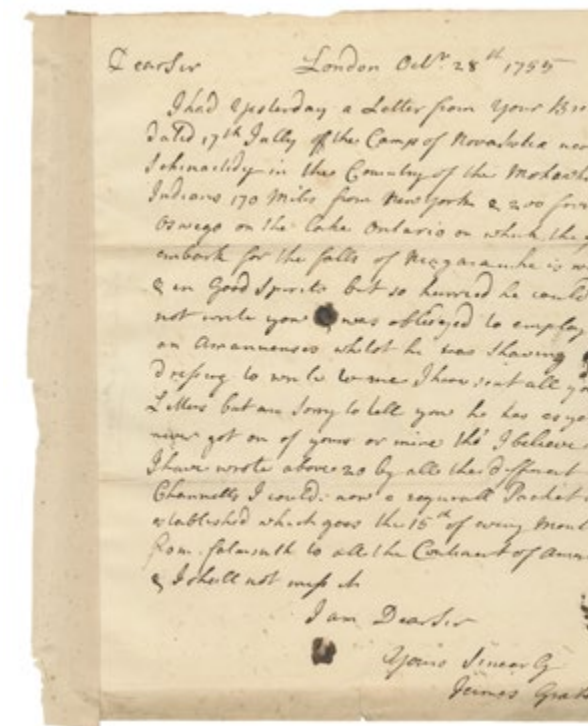 Dear Sir London Octbr. 28th 1755
I had Yesterday a Letter from Your
dated 17th Jully of the Camp of
in the Country of the
Indians 170 Miles from New york & 200
Oswego on the lake Ontario on which the
embark for the falls of he is
& in Good Spirits but so hurried he could
not write you was obliedged to employ
an Amannenses whilst he was Shaving
dressing to write to me I have sent all
Letters but am Sorry to tell you he has as
never got on of yours or mine tho' I believe
I have wrote above 20 by all the different
Channells I could: now a regurall Packet
established which goes the 15th of every
from falmuth to all the Continent of
& I shall not miss it
I am Dear Sir
Yours
James